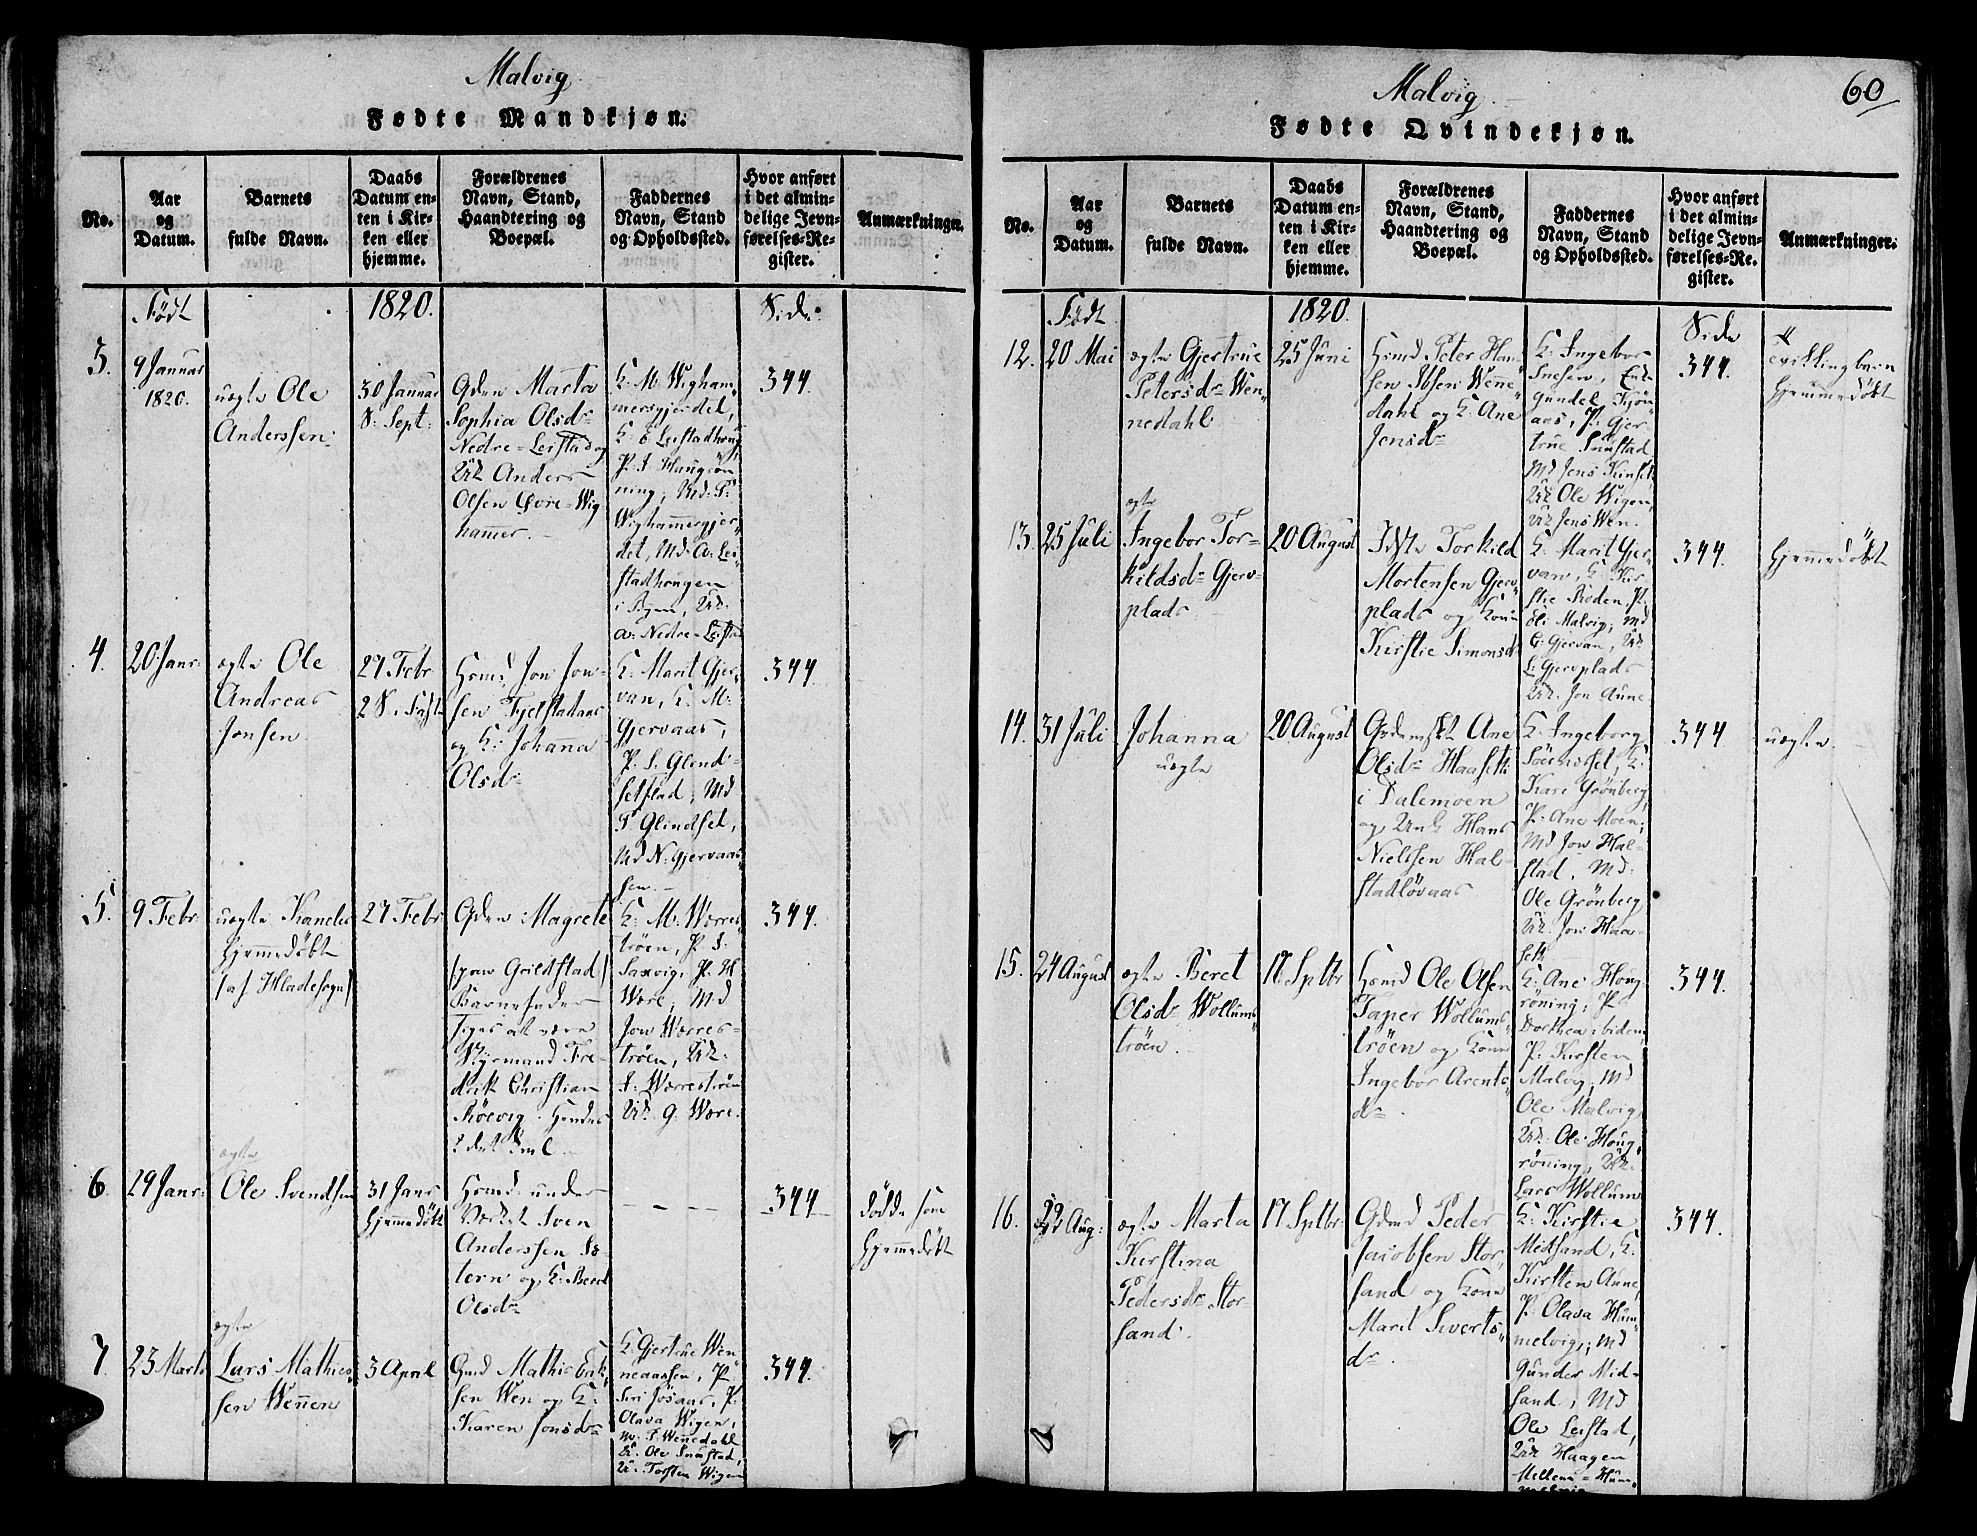 Malvig
Fødte Mandkjøn.
No.
Aar
og
Datum.
Barnets
fulde Navn.
Daabs
Datum en-
ten i Kir-
ken eller
hjemme.
Forældrenes
Navn, Stand,
Haandtering og
Boepæl.
Faddernes
Navn, Stand
og Opholdssted.
Hvor anført
i det almin-
delige Jevn-
førelses-Re-
gister.
Anmærkninger.
Født
1820.
Side
3.
9 Januar
1820.
uægte Ole
Anderssen
30 Januar
S: Sept:
Gden Marta
Sophia Olsdr
Nedre-Leistad og
Anders
Olsen Øvre-Wig
hammer.
K. M. Wigham-
mersgjerdet,
K. E Leistadhoug
P. I. Haugrøn
ning, Md: P:
Wighammergjer
det, Md: A: Lei
stadhougen
A: Nedre-Leistad
344.
4.
20 Janr:
ægte Ole
Andreas
Jonsen
27 Febr
2 S. Fast
Hsmd Jon Jon-
sen Fjelstadaas
og K: Johanna
Olsdr
K. Marit Gjer
van, K. M:
Gjervaas,
P. S. Glend-
setstad, Md
P Glindset,
Md N. Gjervaas
sen.
344.
5.
9 Febr
uægte Kanelis
Hjemmedøbt
(af Hladesogn)
27 Febr
Gden Magrete
(paa Grildstad)
Barnefader
siges at være
Styrmand Fre-
drik Christian
Röevig. Hendes
K. M. Wærres
trøen, P. I.
Saxvig, P. H
Wære, Md
Jon Wærres-
trøen,
I: Wærrestrøen
G. Wære.
344.
6.
29 Janr:
ægte
Ole Svendsen
31 Janr
Hjemmedøbt
Hsmd under
Værket Sven
Anderssen Sæ-
tern og K. Beret
Olsdr
- - - -
344
Dødde som
Hjemmedøbt
7
23 Marts
ægte
Lars Mathies
sen Wennen
3 April
Gmd Mathis Erik
sen Wen og K:
Karen Jonsdr
K Gjertrue Wen
neaassen, P.
Siri Jøsaas, P.
Olava Wigen,
M. P. Wennedahl
U. Ole Snustad,
U. Torsten Wigen
344.
Malvig.
60
Fødte Qvindekjøn.
No.
Aar
og
Datum.
Barnets
fulde Navn.
Daabs
Datum en-
ten i Kir-
ken eller
hjemme.
Forældrenes
Navn, Stand,
Haandtering og
Boepæl.
Faddernes
Navn, Stand
og Opholdssted.
Hvor anført
i det almin-
delige Jevn-
førelses-Re-
gister.
Anmærkninger.
Født
1820.
Side
12.
20 Mai
ægte Gjertrue
Petersdr Wen
nedahl
25 Juni
Hsmd Peter Han
sen Ibsen Wenne
dahl og K: Ane
Jensdr
K: Ingebor
aas, P. Gjer
true Snustad
Md Jens Kinset
Ole Wigen
Jens Wen.
344.
tvillingbarn
Hjemmedøbt
13.
25 Juli
ægte
Ingebor Tor-
kildsdr Gjerv-
plads
20 August
Idste Torkild
Mortensen Gjerv
plads og Kone
Kirstie Simonsdr
K. Marit Gjer
van, K. Kir
stie Roden, P.
Eli Malvig, Md
G. Gjervan,
L: Gjervplads
Jon Aune
344
Hjemmedøbt
14.
31 Juli
Johanna
uægte
20 August
Ane
Olsdr Haaseth
i Dalemoen
og Hans
Nielssen Hal-
stadløvaas
K. Ingeborg
Kari Grönberg,
P. Ane Moen,
Md Jon Hal-
stad, Md:
Ole Grönberg
Jon Haa-
seth
344
uægte.
15.
24 August
ægte Beret
Olsdr Wollums
trøen.
17 Sptbr
Hsmd Ole Olsen
Taper Wollums
trøen og Kone
Ingebor Arents-
dr.
K. Ane Houg
røning, P.
Dorthea ibidem,
P. Kirsten
Malvig, Md
Ole Malvig
Ole Houg
røning,
Lars Wollum
344.
16.
22 Aug:
ægte Marta
Kirstina
Pedersdr Stor-
sand.
17 Sptbr:
Gdmd Peder
Jacobsen Stor-
sand og Kone
Marit Siverts-
dr.
K: Kirstie
Midsand, K.
Kirsten Aune,
P. Olava Hum
melvig, Md
Gunder Mid-
sand, Md
Ole Leistad,
Haagen
Mellem-Hum
melvig
344.